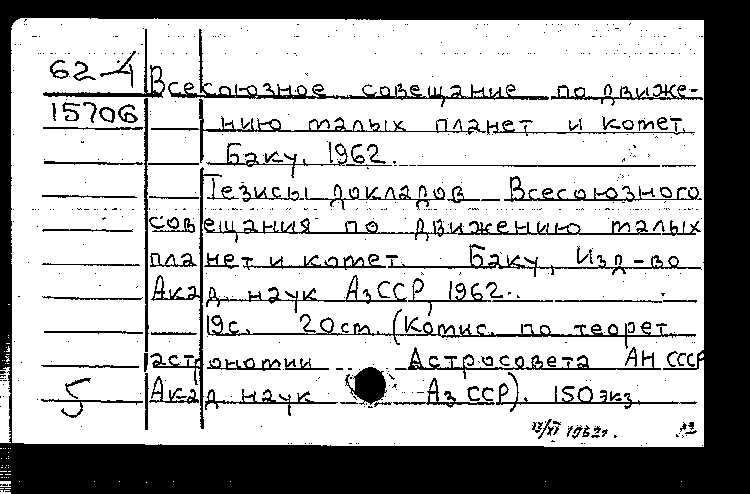 62-4 Всесоюзное совещание по движе-
15706 нию малых планет и комет.
Баку. 1962.
Тезисы докладов Всесоюзного
совещания по движению малых
планет и комет. Баку, Изд-во
Акад. наук АзССР, 1962.
19с. 20см. (Комис. по теорет.
астрономии Астросовета АН СССР
5 Акад. наук АзССР). 150 экз.
1962г.